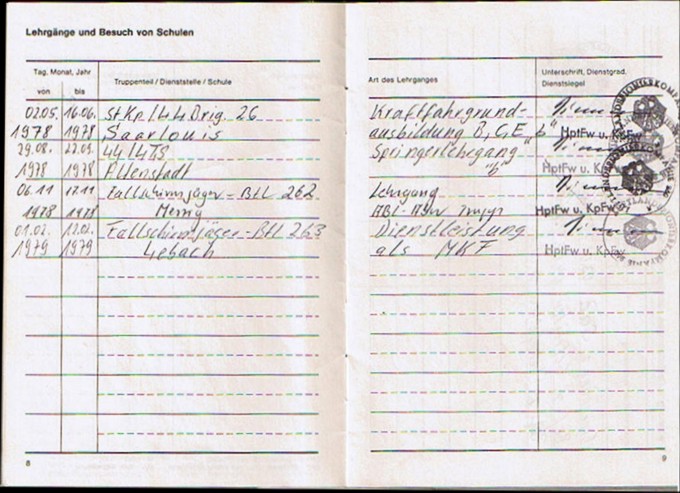 Lehrgänge und Besuch von Schulen
Tag, Monat, Jahr
von bis
Truppenteil / Dienststelle / Schule
Art des Lehrganges
Unterschrift, Dienstgrad,
Dienstsiegel
02.05. 16.06. St.Kp/ Brig. 26 Kraftfahrgrund-
1978 1978 Saarlouis ausbildung B, C, E "b" HptFw u. KpFw
29.08. 22.09. Springerlehrgang
1978 1978 "b" HptFw u. KpFw
06.11 17.11 Fallschirmjäger-Btl 262 Lehrgang
1978 1978 Merzig HptFw u. KpFw
01.02. 12.02. Fallschirmjäger-Btl 263 Dienstleistung
1979 1979 Lebach als MKF HptFw u. KpFw
8
9